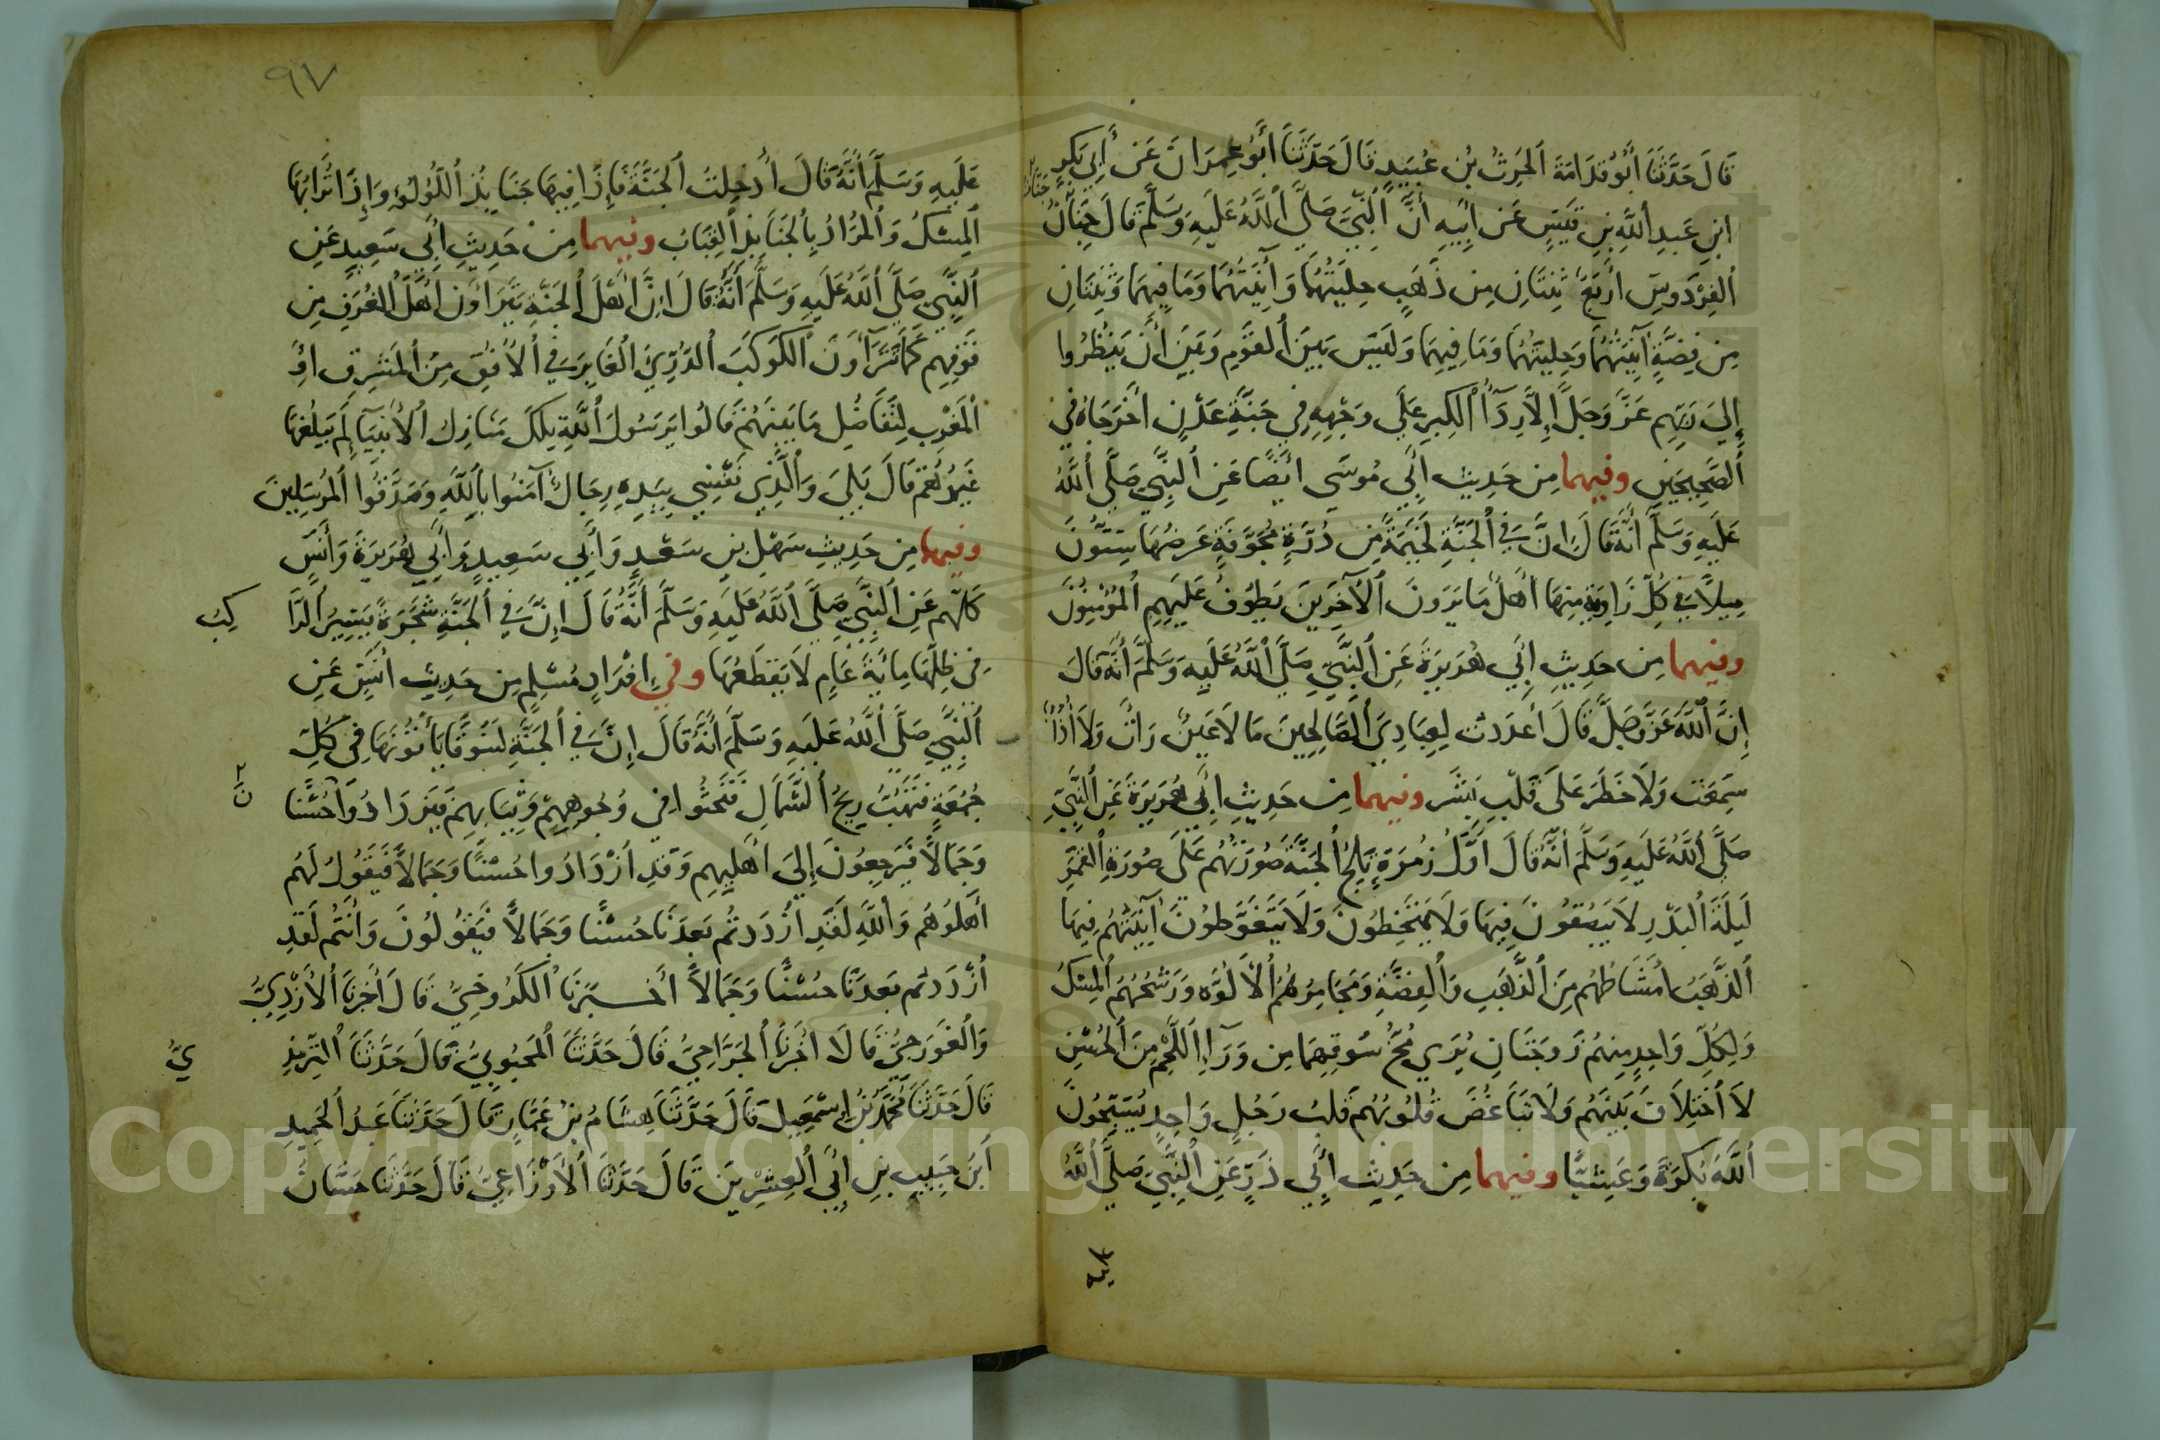 قَالَ حَدَّثَنَا أَبُو قُدَامَةَ الحَرِثُ بْنُ عُبَيْدٍ قَالَ حَدَّثَنَا أَبُو عِمْرَانَ عَنْ أَبِي بَكرِ
ابنِ عَبدِ اللَّهِ بنِ قَيْسٍ عَن أبِيهِ أنَّ النَّبِيَّ صَلَّى اللَّهُ عَلَيهِ وَسَلَّمَ قَالَ جِنَانُ
الفِرْدَوسِ أَربَعٌ ثِنْتَانِ مِن ذَهَبٍ حِليَتُهُمَا وَآنِيَتُهُمَا وَمَا فِيهِمَا وَثِنتَانِ
مِن فِضَّةٍ آنِيَتُهُمَا وَحِليَتُهُمَا وَمَا فِيهِمَا وَلَيسَ بَينَ القَومِ وَبَينَ أَن يَنظُرُوا
إِلَى رَبِّهِم عَزَّ وَجَلَّ إِلَّا رِدَآءُ الكِبرِ عَلَى وَجهِهِ فِي جَنَّةِ عَدْنٍ أَخرَجَاهُ فِي
الصَّحِيحَينِ وفيهما مِن حَدِيثِ أَبِي مُوسَى أيضًا عَنِ النَّبِيِّ صَلَّى اللَّهُ
عَلَيهِ وَسَلَّمَ أنَّهُ قَالَ إنَّ فِي الجَنَّةِ لَخَيمَةً مِن دُرَّةٍ مُجَوَّفَةٍ عَرضُهَا سِتُّونَ
مِيلًا فِي كُلِّ زَاوِيَةٍ مِنهَا أهلٌ مَا يَرَونَ الآخَرِينَ يَطُوفُ عَلَيهِمِ المُؤمِنُونَ
وفيهما مِن حَدِيثِ أَبِي هُرَيرَةَ عَنِ النَّبِيِّ صَلَّى اللَّهُ عَلَيهِ وَسَلَّمَ أنَّهُ قَالَ
إنَّ اللَّهَ عَزَّ وَجَلَّ قَالَ أَعدَدتُ لِعِبَادِيَ الصَّالِحِينَ مَا لَا عَينٌ رَأت وَلَا أُذُنٌ
سَمِعَت وَلَا خَطَرَ عَلَى قَلبِ بَشَرٍ وفيهما مِن حَدِيثِ أَبِي هُرَيرَةَ عَنِ النَّبِيِّ
صَلَّى اللَّهُ عَلَيهِ وَسَلَّمَ أنَّهُ قَالَ أَوَّلُ زُمرَةٍ تَلِجُ الجَنَّةَ صُورَتُهُم عَلَى صُورَةِ القَمَرِ
لَيلَةَ البَدرِ لَا يَبصُقُونَ فِيهَا وَلَا يَمتَخِطُونَ وَلَا يَتَغَوَّطُونَ آنِيَتُهُم فِيهَا
الذَّهَبُ أَمشَاطُهُم مِنَ الذَّهَبِ وَالفِضَّةِ وَمَجَامِرُهُمُ الأَلُوَّه وَرَشحُهُمُ المِسكُ
وَلِكُلِّ وَاحِدٍ مِنهُم زَوجَتَانِ يُرَى مُخُّ سُوقِهِمَا مِن وَرَآءِ اللَّحمِ مِنَ الحُسنِ
لَا اختِلَافَ بَينَهُم وَلَا تَبَاغُضَ قُلُوبُهُم قَلبُ رَجُلٍ وَاحِدٍ يُسَبِّحُونَ
اللَّهَ بُكرَةً وَعَشِيًّا وفيهما مِن حَدِيثِ أَبِي ذَرٍّ عَنِ النَّبِيِّ صَلَّى اللَّهُ
عليه
٩٧
عَلَيهِ وَسَلَّمَ أنَّهُ قَالَ أُدخِلتُ الجَنَّةَ فَإِذَا فِيهَا جَنَابِذُ اللُّؤلُؤِ وَإِذَا تُرَابُهَا
المِسكُ وَالمُرَادُ بِالجَنَابِذِ القِبَابُ وفيهما مِن حَدِيثِ أَبِي سَعِيدٍ عَنِ
النَّبِيِّ صَلَّى اللَّهُ عَلَيهِ وَسَلَّمَ أنَّهُ قَالَ إنَّ أهلَ الجَنَّةِ يَتَرَاءَونَ أهلَ الغُرَفِ مِن
فَوقِهِم كَمَا تَتَرَآءَونَ الكَوكَبَ الدُّرِّيَّ الغَابِرَ فِي الأُفُقِ مِنَ المَشرِقِ أوِ
المَغرِبِ لِتَفَاضُلِ مَا بَينَهُم قَالُوا يَرَسُولَ اللَّهِ تِلكَ مَنَازِلُ الأنبِيَآءِ لَم يَبلُغهَا
غَيرُهُم قَالَ بَلَى وَالَّذِي نَفسِي بِيَدِهِ رِجَالٌ آمَنُوا بِاللَّهِ وَصَدَّقُوا المُرسَلِينَ
وفيهما مِن حَدِيثِ سَهلِ بنِ سَعدٍ وَأَبِي سَعِيدٍ وَأَبِي هُرَيرَةَ وَأَنَسٍ
كُلُّهُم عَنِ النَّبِيِّ صَلَّى اللَّهُ عَلَيهِ وَسَلَّمَ أنَّهُ قَالَ إنَّ فِي الجَنَّةِ شَجَرَةً يَسِيرُ الرَّا
كِبُ
فِي ظِلِّهَا مِايَةَ عَامٍ لَا يَقطَعُهَا وفي إِفرَادِ مُسلِمٍ مِن حَدِيثِ أَنَسٍ عَنِ
النَّبِيِّ صَلَّى اللَّهُ عَلَيهِ وَسَلَّمَ أنَّهُ قَالَ إنَّ فِي الجَنَّةِ لَسُوقًا يَأتُونَهَا فِي كُلِّ
جُمُعَةٍ فَتَهُبُّ رِيحُ الشَّمَالِ فَتَحثُوا فِي وُجُوهِهِم وَثِيَابِهِم فَيَزدَادُوا حُسنًا
ن
وَجَمَالًا فَيَرجِعُونَ إلَى أهلِيهِم وَقَدِ ازدَادُوا حُسنًا وَجَمَالًا فَيَقُولُ لَهُم
أَهلُوهُم وَاللَّهِ لَقَدِ ازدَدتُم بَعدَنَا حُسنًا وَجَمَالًا فَيَقُولُونَ وَأنتُم لَقَدِ
ازدَدتُم بَعدَنَا حُسنًا وَجَمَالًا أخبَرَنَا الكَرُوخِيُّ قَالَ أخبَرَنَا الأَزدِيُّ
وَالغَورَجِيُّ قَالَا أخبَرَنَا الجَرَّاحِيُّ قَالَ حَدَّثَنَا المَحبُوبِيُّ قَالَ حَدَّثَنَا التِّرمِذِ
يُّ
قَالَ حَدَّثَنَا مُحَمَّدُ بنُ إِسمَعِيلَ قَالَ حَدَّثَنَا هِشَامُ بنُ عَمَّارٍ قَالَ حَدَّثَنَا عَبدُ الحَمِيدِ
ابنُ حَبِيبِ بنِ أَبِي العِشرِينَ قَالَ حَدَّثَنَا الأَوزَاعِيُّ قَالَ حَدَّثَنَا حَسَّانُ
Copyright © King Saud University